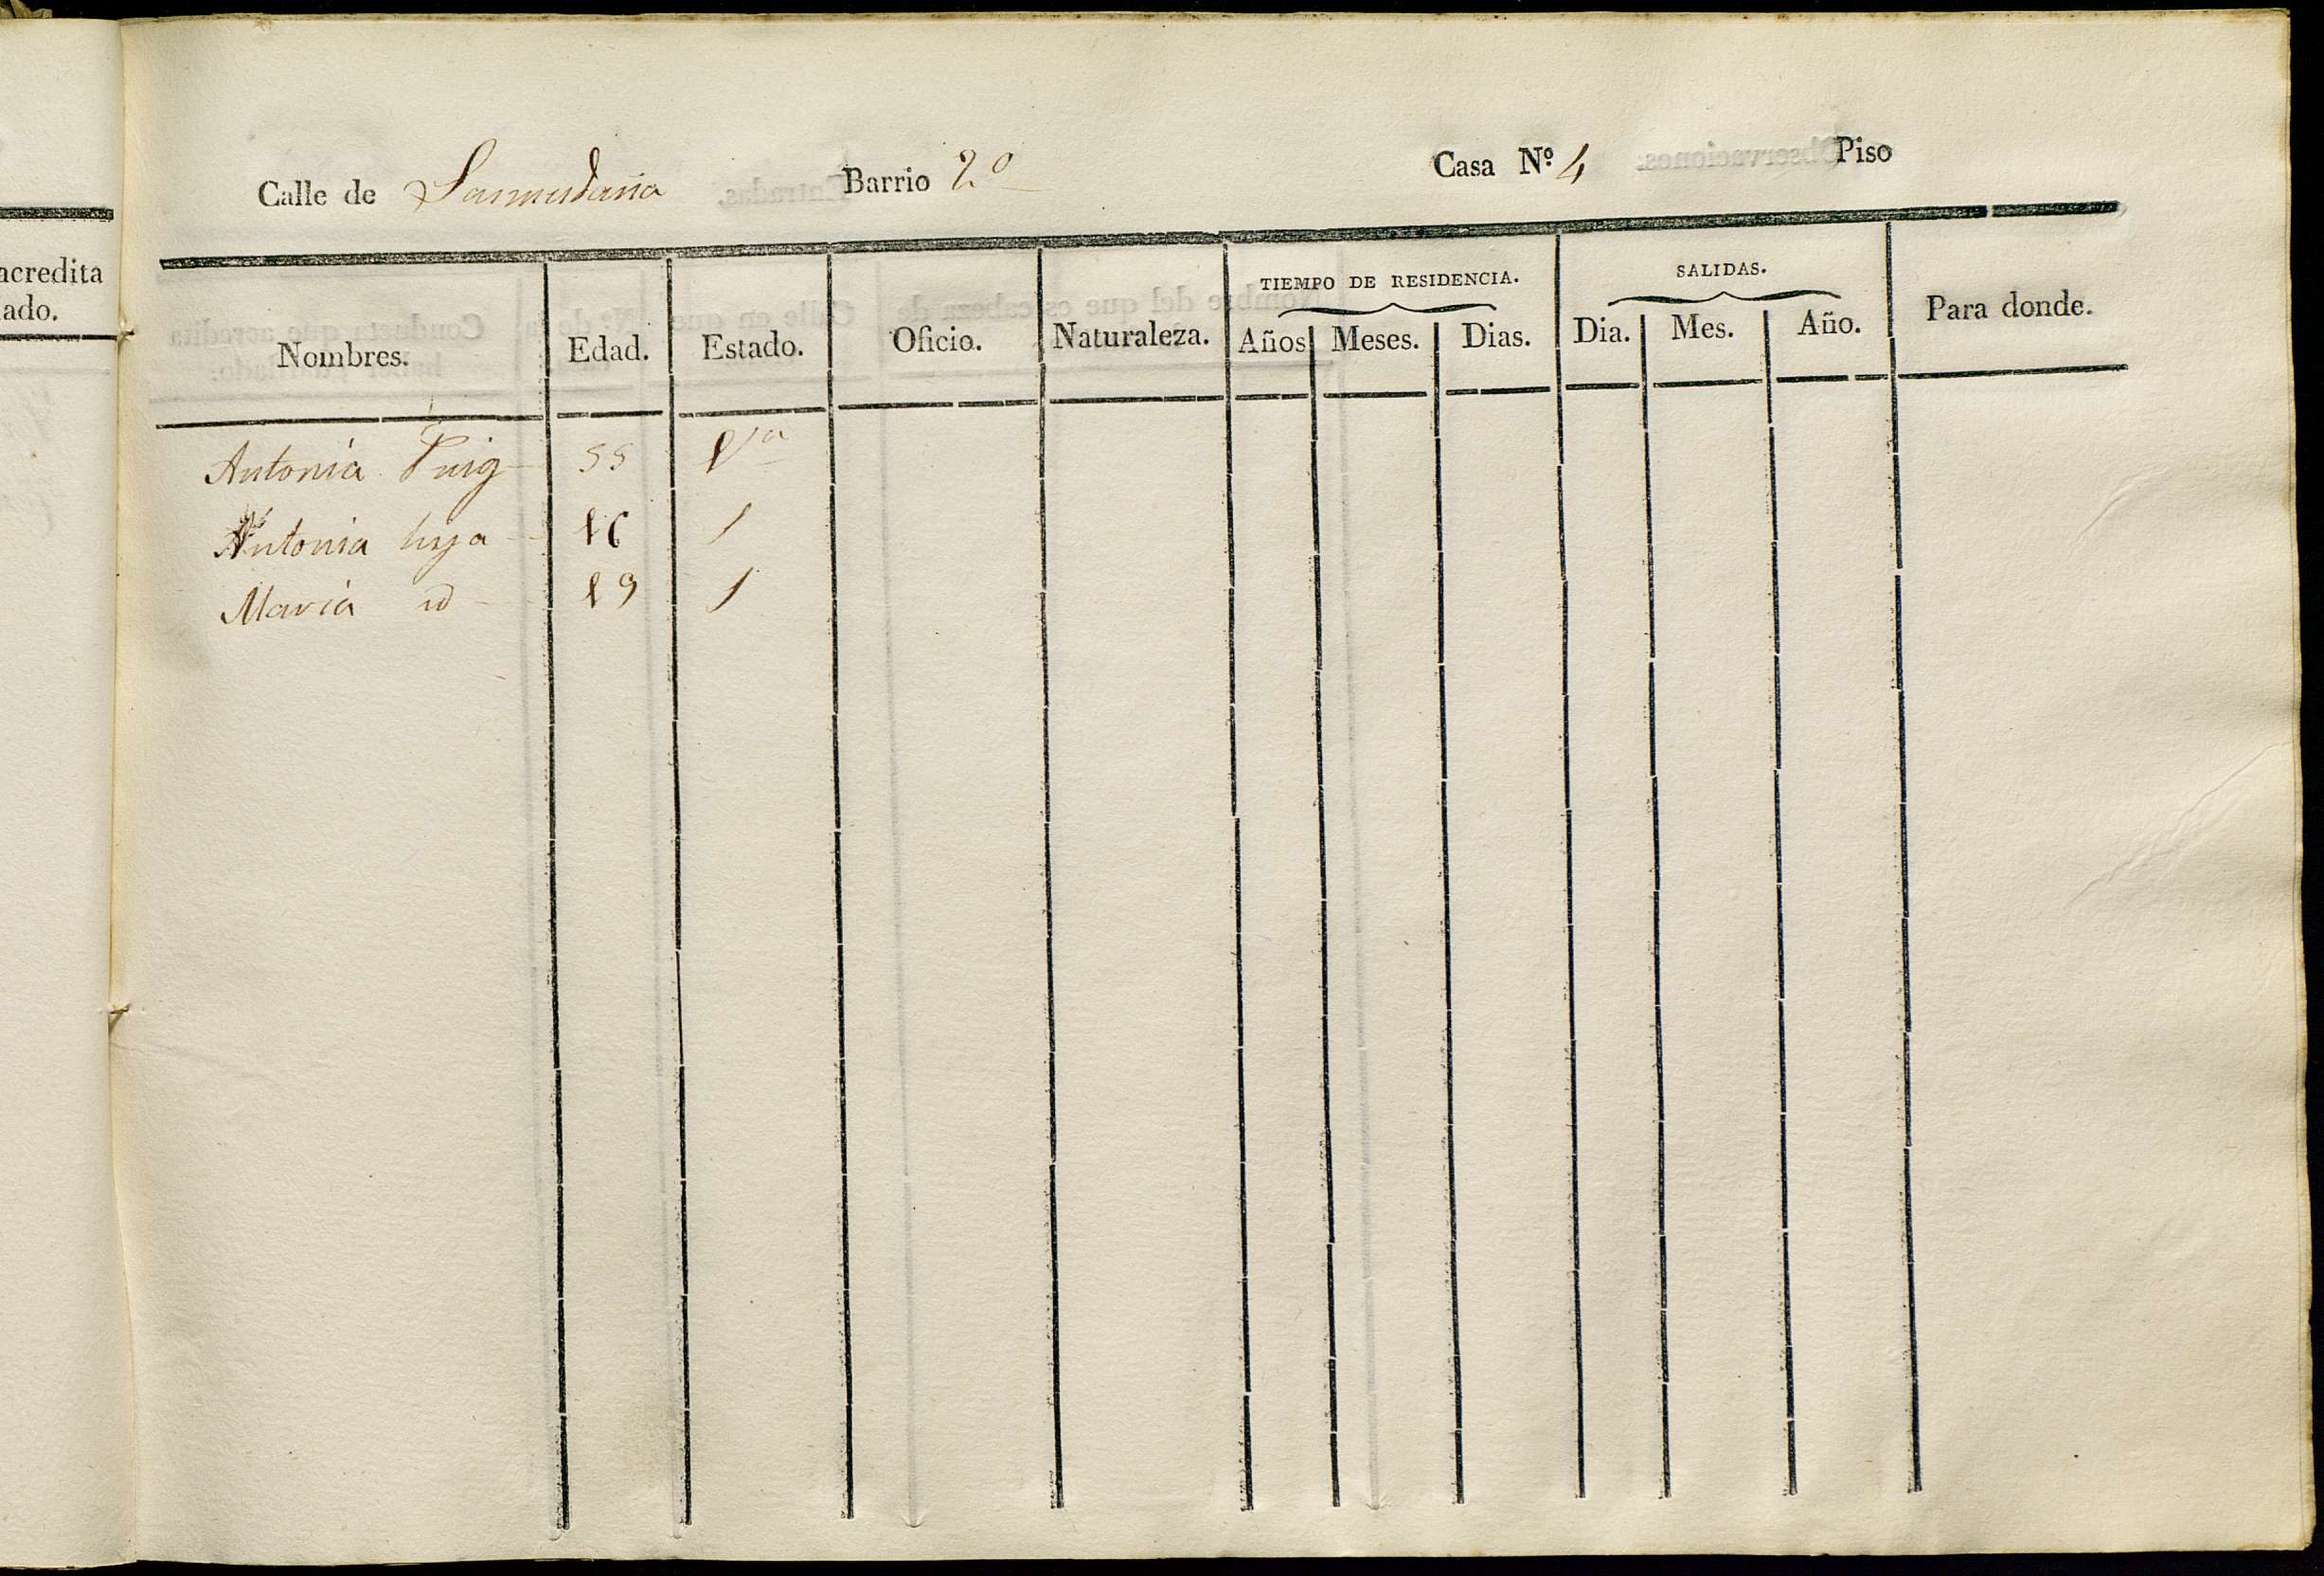 acredita
ado.
Calle de Sanmudaña Barrio 2.º Casa Nº 4 Piso
Nombres. Edad. Estado. Oficio. Naturaleza. TIEMPO DE RESIDENCIA. Años Meses. Dias. SALIDAS. Dia. Mes. Año. Para donde.
Antonia Puig 55 Vª
Antonia hija 16
Maria id 19